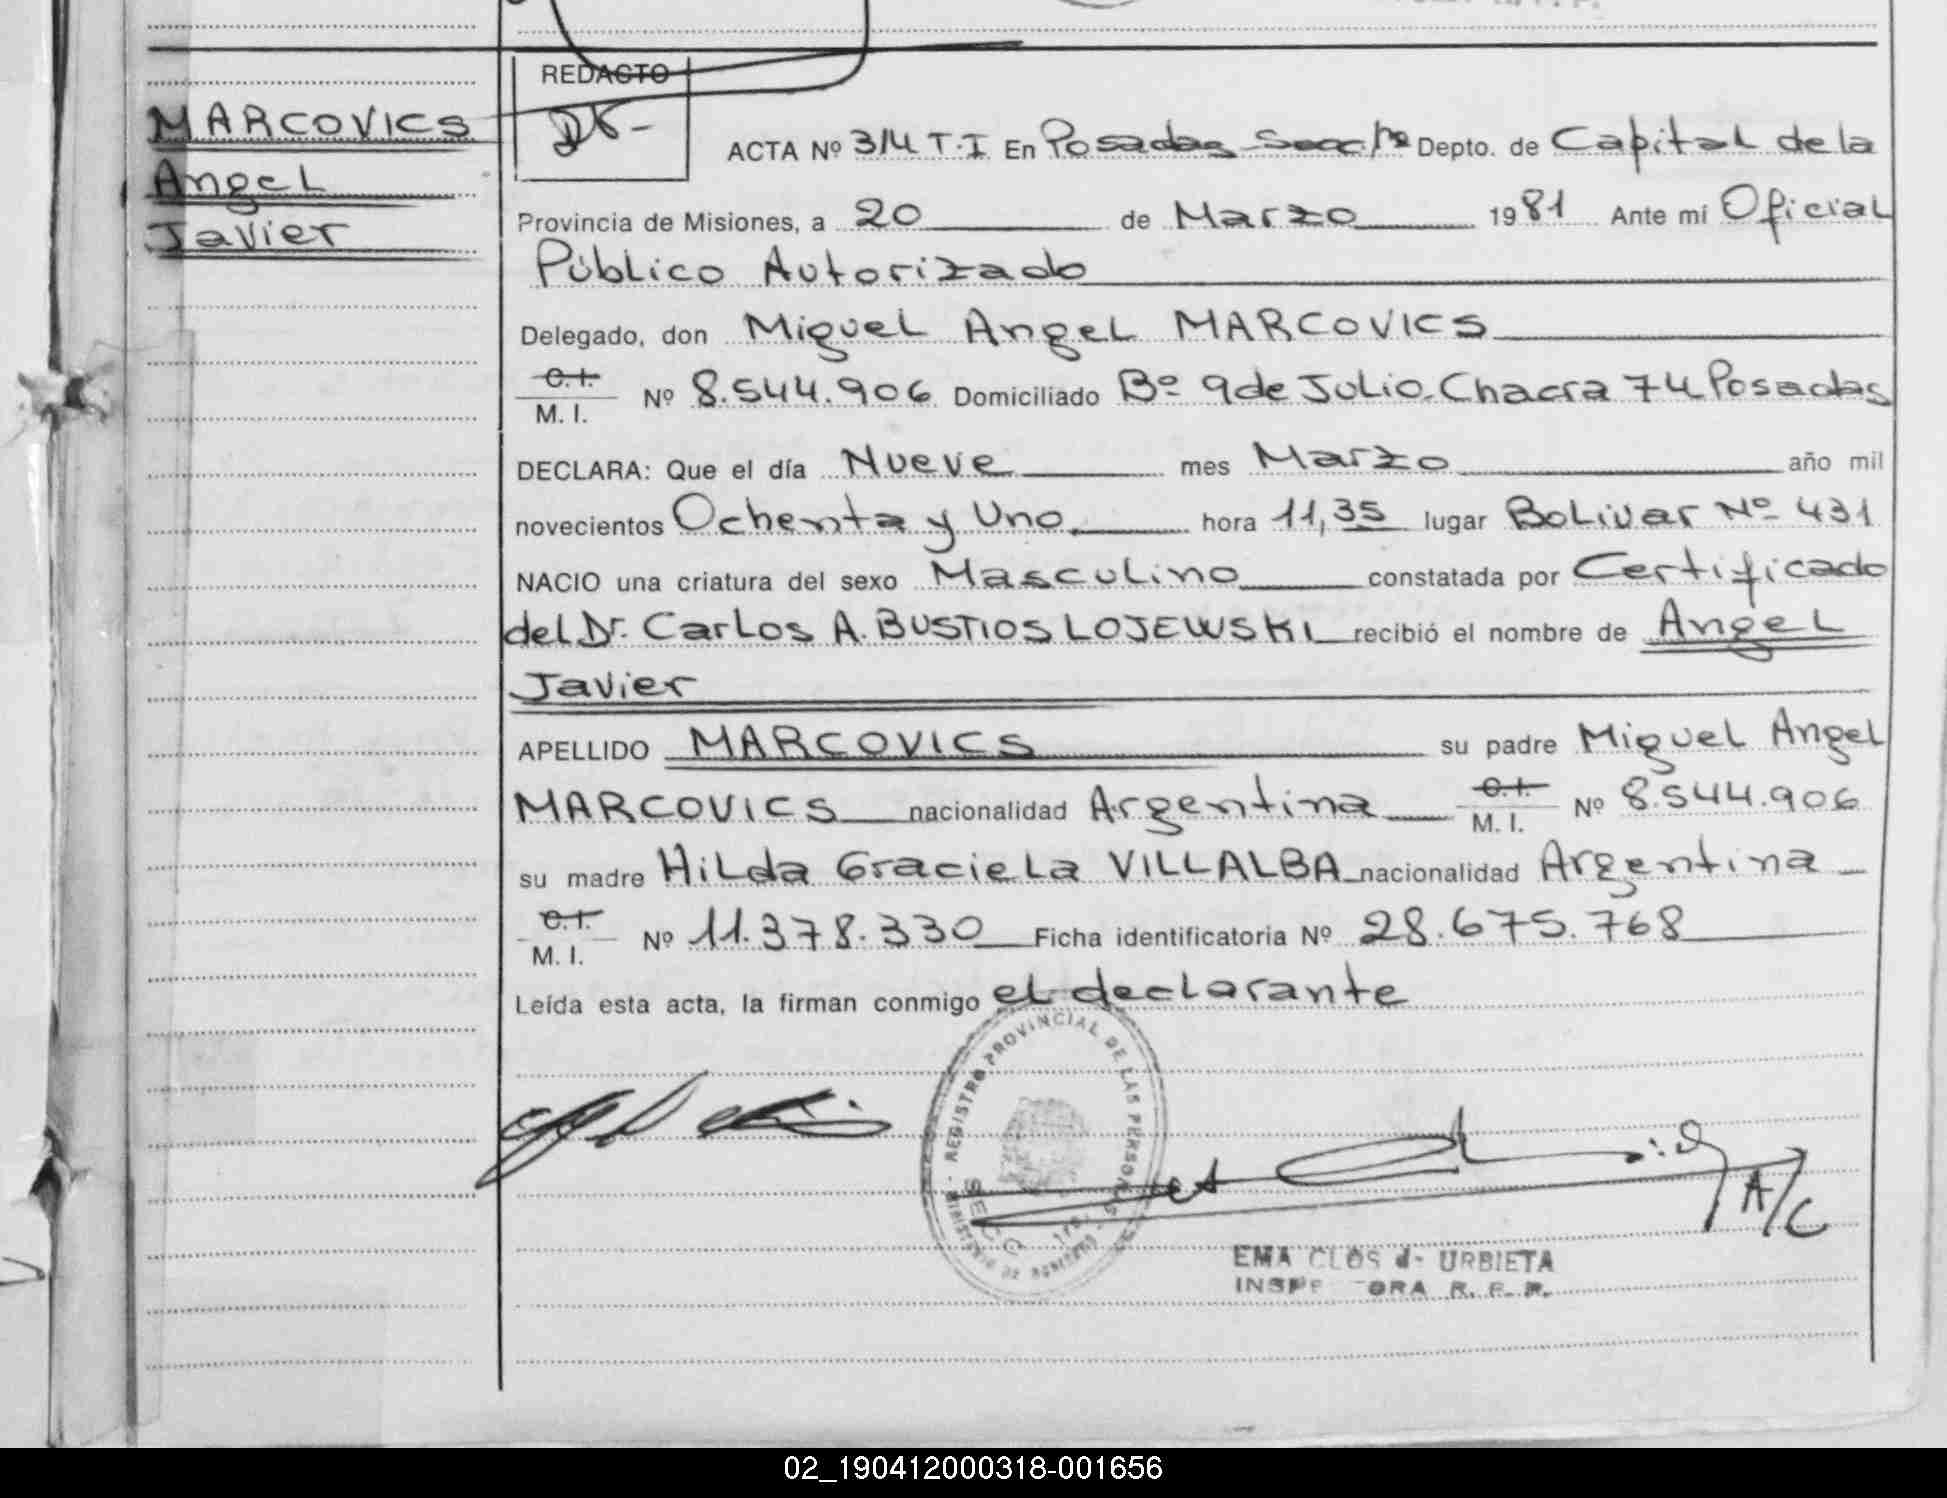 REDACTO
MARCOVICS
Angel
Javier
ACTA Nº 314 T.I En Posadas Secc 1ra Depto. de Capital de la
Provincia de Misiones, a 20 de Marzo 1981 Ante mí Oficial
Público Autorizado
Delegado, don Miguel Angel MARCOVICS
C.I.
M. I. Nº 8.544.906 Domiciliado Bº 9 de Julio. Chacra 74 Posadas
DECLARA: Que el día Nueve mes Marzo año mil
novecientos Ochenta y Uno hora 11,35 lugar Bolivar Nº 431
NACIO una criatura del sexo Masculino constatada por Certificado
del Dr. Carlos A. BUSTIOS LOJEWSKI recibió el nombre de Angel
Javier
APELLIDO MARCOVICS su padre Miguel Angel
MARCOVICS nacionalidad Argentina C.I. M. I. Nº 8.544.906
su madre Hilda Graciela VILLALBA nacionalidad Argentina
C.I.
M. I. Nº 11.378.330 Ficha identificatoria Nº 28.675.768
Leída esta acta, la firman conmigo el declarante
REGISTRO PROVINCIAL DE LAS PERSONAS
MINISTERIO DE GOBIERNO
SECC
A/C
EMA CLOS de URBIETA
R. P. P.
02_190412000318-001656